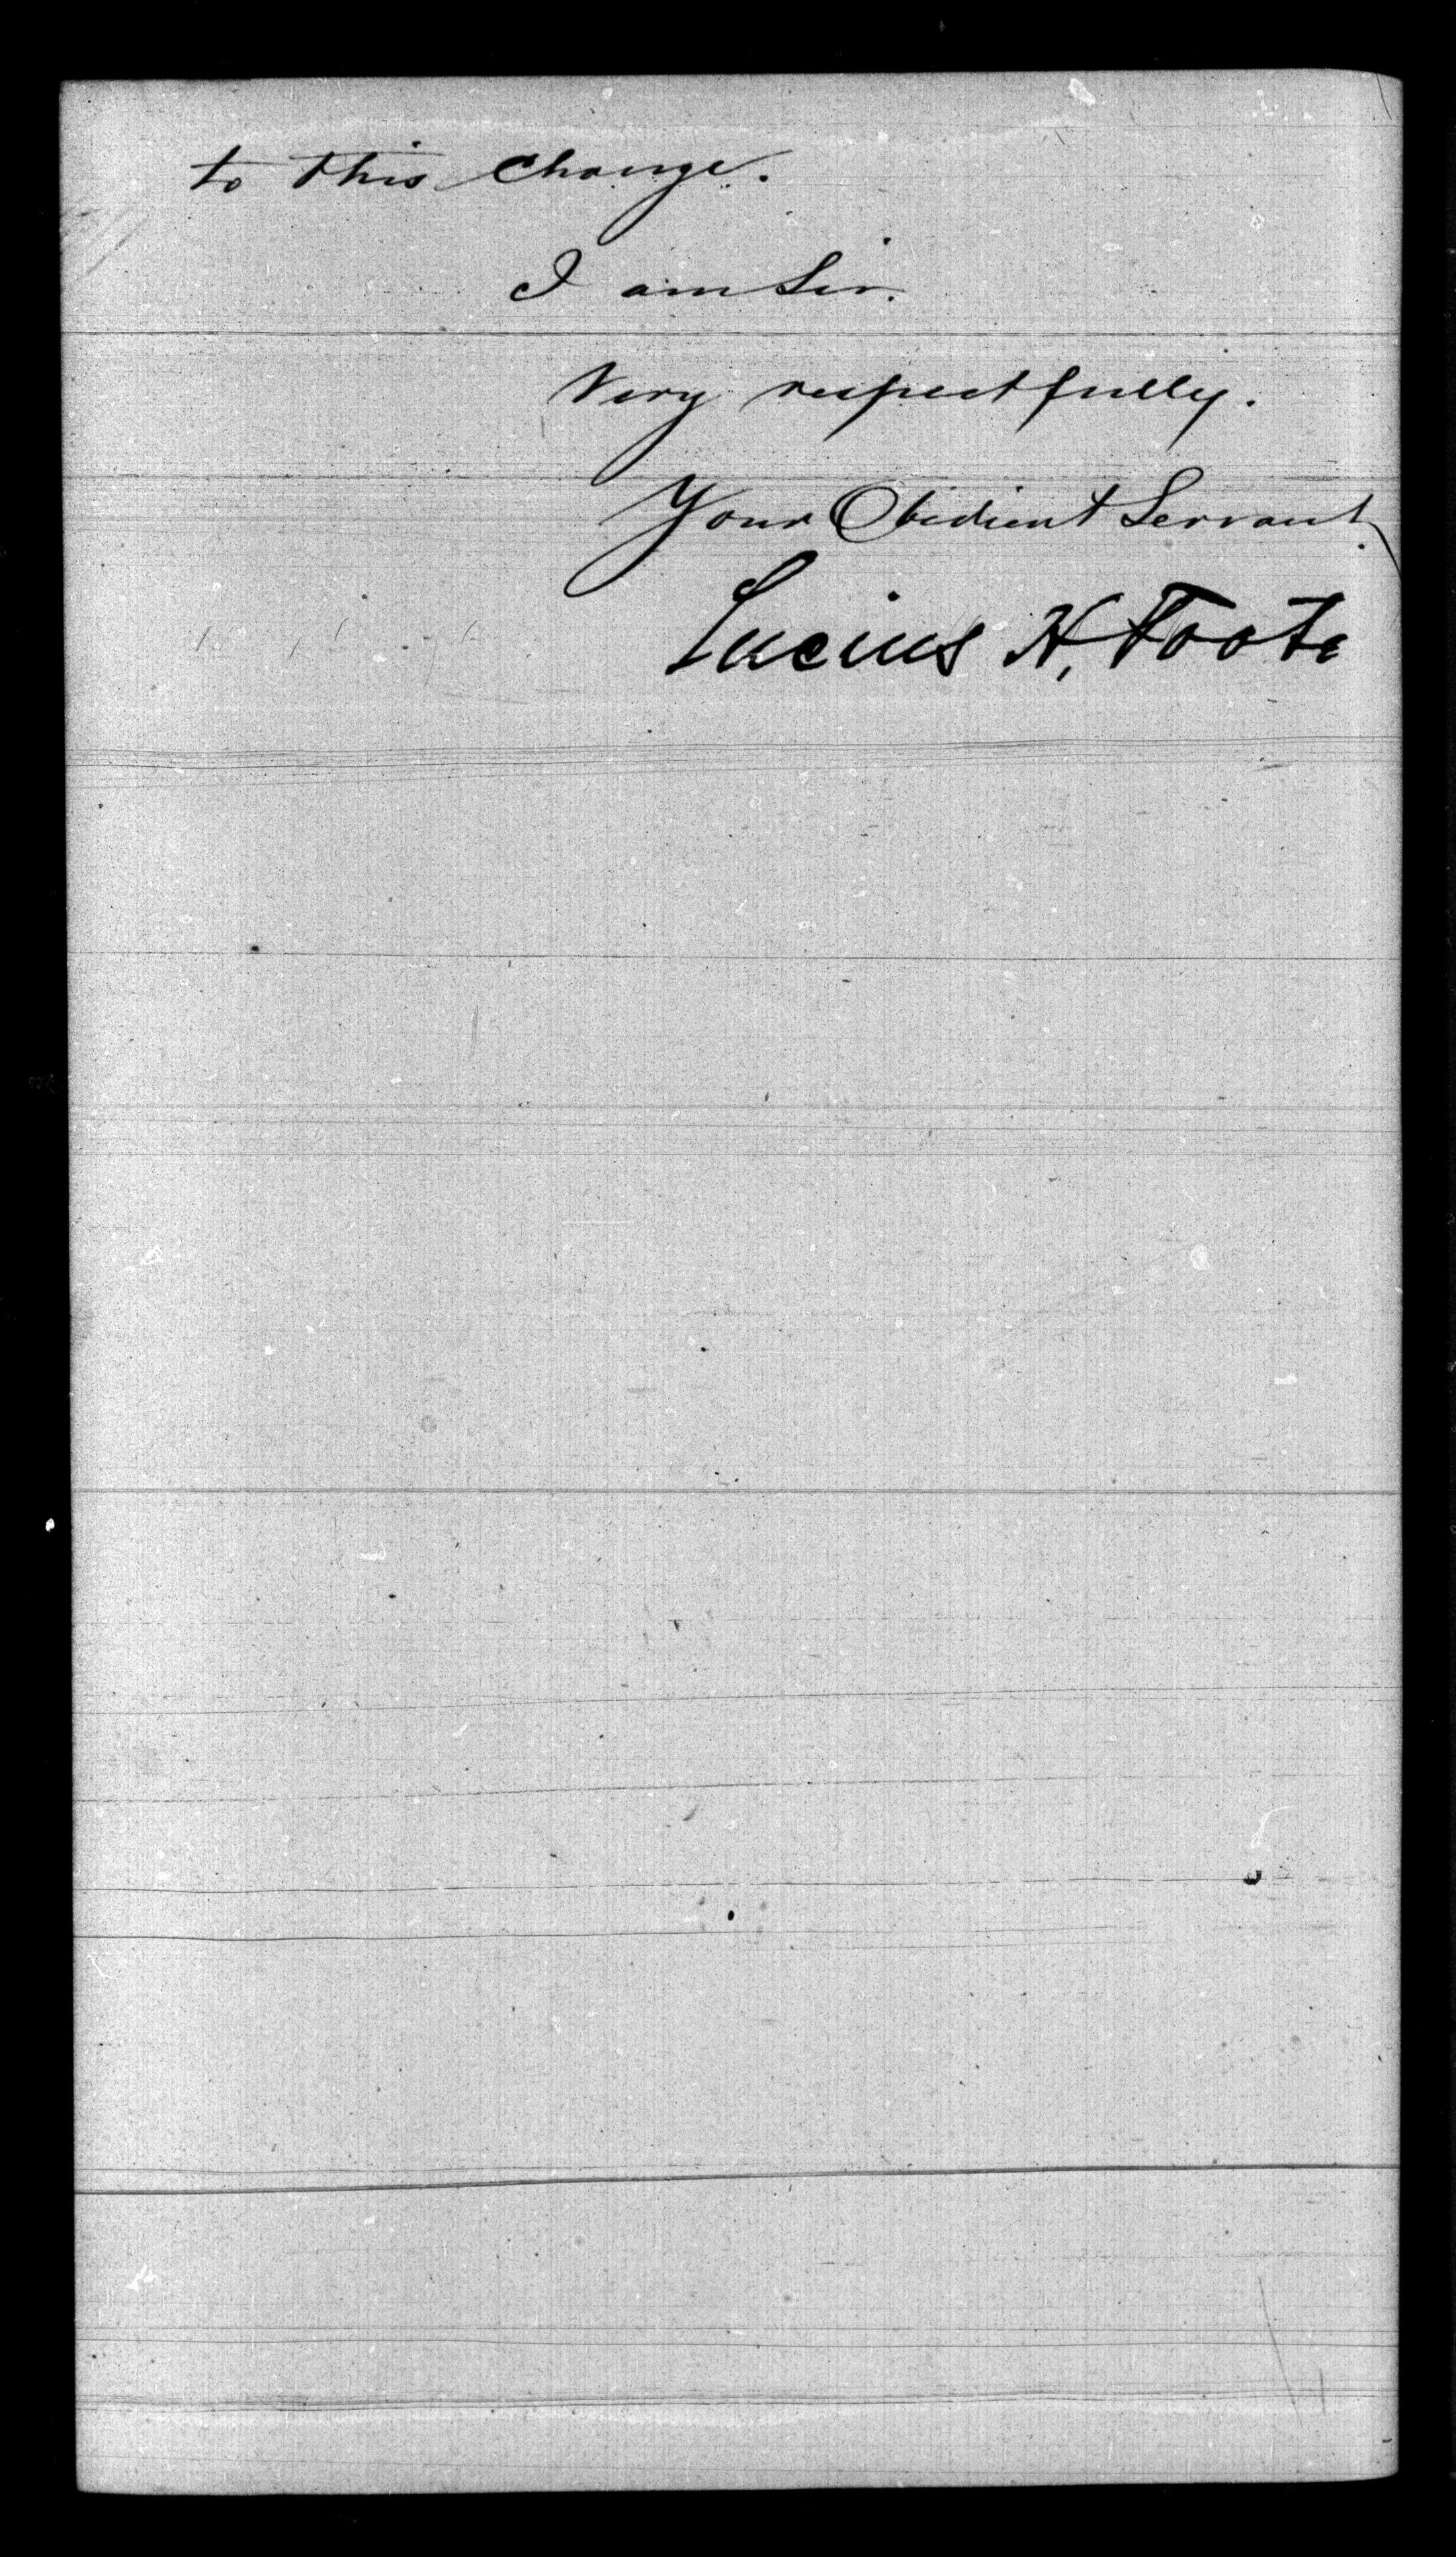 to this change.
I am Sir.
Very respectfully.
Your Obedient Servant,
Lucius H, Foote